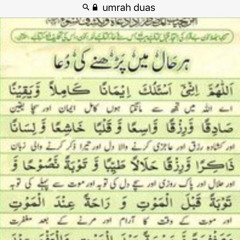 umrah duas
ہر حال میں پڑھنے کی دُعا
اَللّٰهُمَّ اِنِّیْ اَسْئَلُكَ اِيْمَانًا كَامِلًا وَّيَقِيْنًا
اے اللہ میں تجھ سے مانگتا ہوں کامل ایمان اور سچا یقین
صَادِقًا وَّرِزْقًا وَّاسِعًا وَّقَلْبًا خَاشِعًا وَّلِسَانًا
اور کشادہ رزق اور عاجزی کرنے والا دل اور تیرا ذکر کرنے والی زبان
ذَاكِرًا وَّرِزْقًا حَلَالًا طَيِّبًا وَّتَوْبَةً نَّصُوْحًا وَّ
اور حلال اور پاک روزی اور سچے دل کی توبہ اور موت سے پہلے کی توبہ
تَوْبَةً قَبْلَ الْمَوْتِ وَرَاحَةً عِنْدَ الْمَوْتِ
اور موت کے وقت کا آرام اور مرنے کے بعد مغفرت